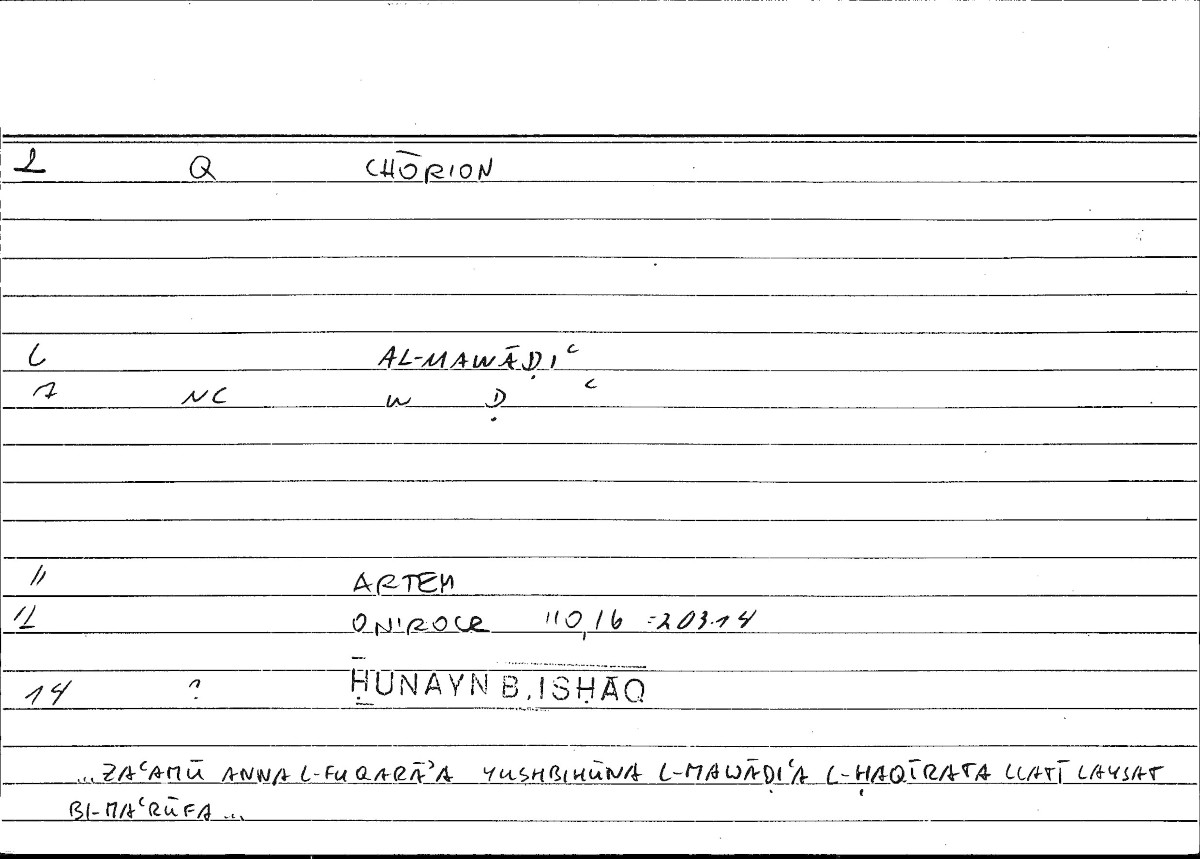 2 Q CHŌRION
6 AL-MAWĀḌIʿ
7 NC W Ḍ ʿ
11 ARTEM
12 ONIROCR 110,16 =203.14
14 ? ḤUNAYN B. ISḤĀQ
...ZAʿAMŪ ANNA L-FUQARĀʾA YUSHBIHŪNA L-MAWĀḌIʿA L-ḤAQĪRATA LLATĪ LAYSAT
BI-MAʿRŪFA...